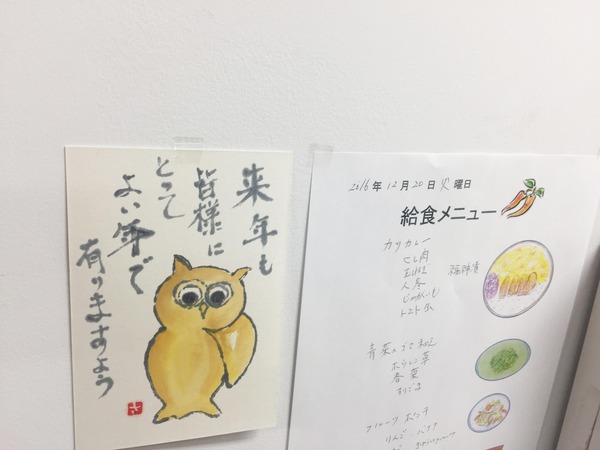 来年も
皆様に
とって
よい年で
有りますよう
さ
2016年12月20日火曜日
給食メニュー
カツカレー
玉ねぎ
人参
じゃがいも
福神漬
青菜のごま和え
ほうれん草
春菊
すりごま
フルーツポンチ
りんご バナナ